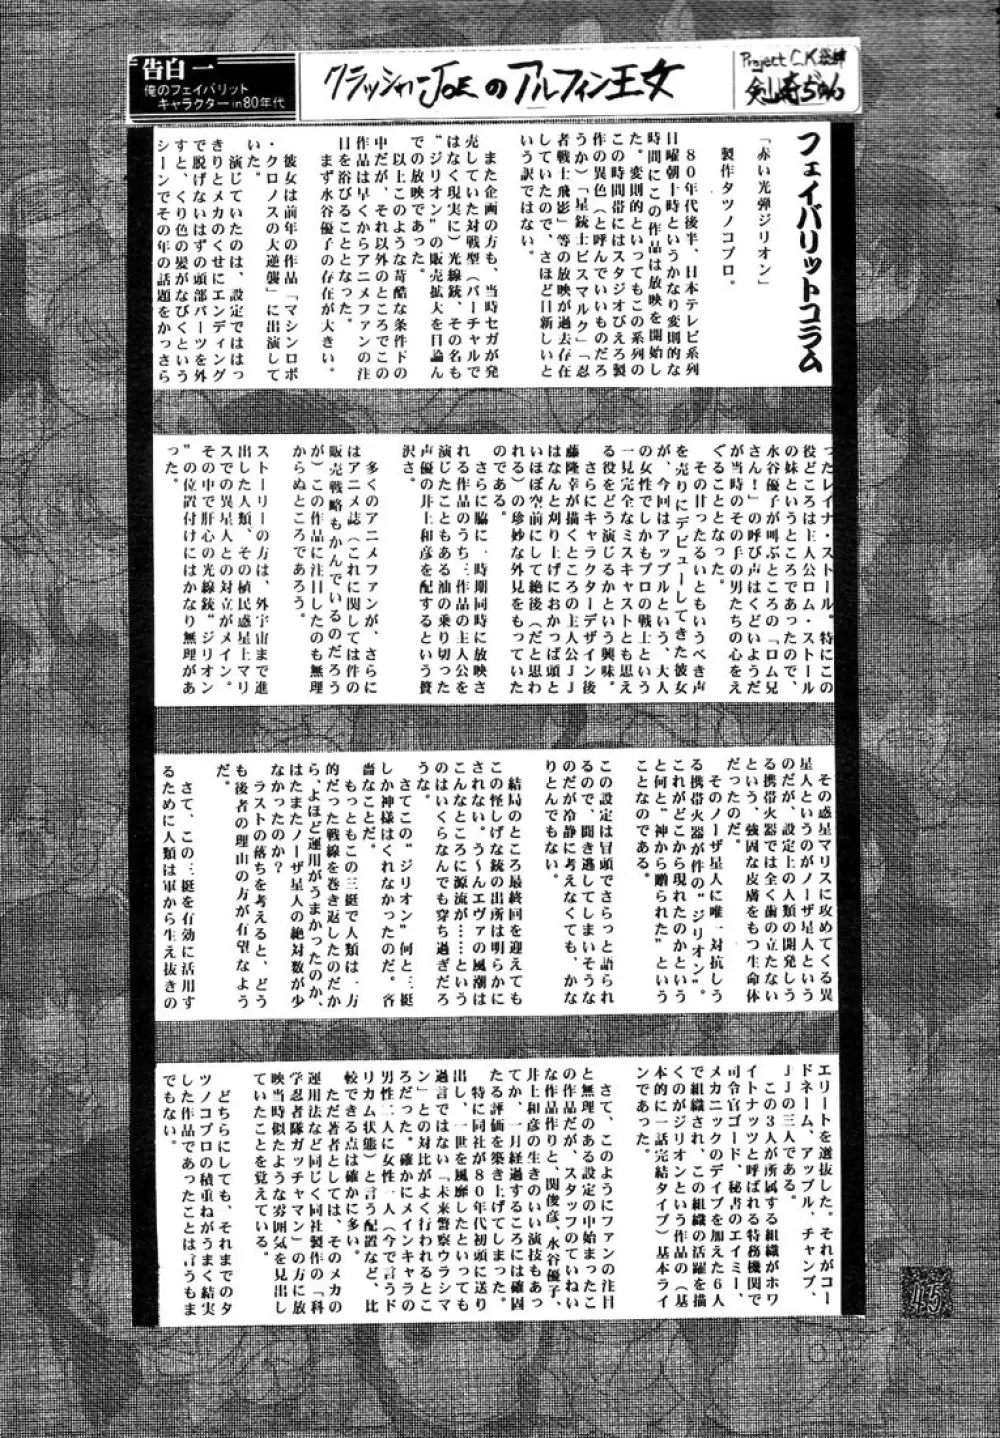 告白一
俺のフェイバリット
キャラクターin80年代
クラッシャーJOEのアルフィン王女
Project C.K.総帥
剣崎ぢゅん
フェイバリットコラム
「赤い光弾ジリオン」
製作タツノコプロ。
８０年代後半、日本テレビ系列
日曜朝十時というかなり変則的な
時間にこの作品は放映を開始し
た。変則的といってもこの系列の
この時間帯にはスタジオぴえろ製
作の異色（と呼んでいいものだろ
うか）「星銃士ビスマルク」「忍
者戦士飛影」等の放映が過去存在
していたので、さほど目新しいと
いう訳ではない。
また企画の方も、当時セガが発
売していた対戦型（バーチャルで
はなく現実に）光線銃、その名も
“ジリオン”の販売拡大を目論ん
での放映であった。
以上このような苛酷な条件下の
中だが、それ以外のところでこの
作品は早くからアニメファンの注
目を浴びることとなった。
まず水谷優子の存在が大きい。
彼女は前年の作品「マシンロボ
・クロノスの大逆襲」に出演して
いた。
演じていたのは、設定でははっ
きりとメカのくせにエンディング
で脱げないはずの頭部パーツを外
すと、くり色の髪がなびくという
シーンでその年の話題をかっさら
ったレイナ・ストール。特にこの
役どころは主人公ロム・ストール
の妹というところであったので、
水谷優子が叫ぶところの「ロム兄
さん！」の呼び声はくどいようだ
が当時のその手の男たちの心をえ
ぐることとなった。
その甘ったるいともいうべき声
を売りにデビューしてきた彼女
が、今回はアップルという、大人
の女性でしかもプロの戦士という
一見完全なミスキャストとも思え
る役をどう演じるかという興味。
さらにキャラクターデザイン後
藤隆幸が描くところの主人公ＪＪ
はなんと刈り上げにおかっぱ頭と
いいほぼ空前にして絶後（だと思わ
れる）の珍妙な外見をもっていた
のである。
さらに脇に一時期同時に放映さ
れる作品のうち三作品の主人公を
演じたこともある油の乗り切った
声優の井上和彦を配するという贅
沢さ。
多くのアニメファンが、さらに
はアニメ誌（これに関しては件の
販売戦略もかんでいるのだろう
が）この作品に注目したのも無理
からぬところであろう。
ストーリーの方は、外宇宙まで進
出した人類、その植民惑星上マリ
スでの異星人との対立がメイン。
その中で肝心の光線銃“ジリオン
”の位置付けにはかなり無理があ
った。
その惑星マリスに攻めてくる異
星人というのがノーザ星人という
のだが、設定上の人類の開発しう
る携帯火器では全く歯の立たない
という、強固な皮膚をもつ生命体
だったのだ。
そのノーザ星人に唯一対抗しう
る携帯火器が件の“ジリオン”。
これがどこから現れたのかという
と何と“神から贈られた”という
ことなのである。
この設定は冒頭でさらっと語られ
るので、聞き逃してしまいそうな
のだが冷静に考えなくても、かな
りとんでもない。
結局のところ最終回を迎えても
この怪しげな銃の出所は明らかに
されない。う〜んエヴァの風潮は
こんなところに源流が……という
のはいくらなんでも穿ち過ぎだろ
うな。
さてこの“ジリオン”何と三挺
しか神様はくれなかったのだ。吝
嗇なことだ。
もっともこの三挺で人類は一方
的だった戦線を巻き返したのだか
ら、よほど運用がうまかったのか、
はたまたノーザ星人の絶対数が少
なかったのか？
ラストの落ちを考えると、どう
も後者の理由の方が有望なよう
だ。
さて、この三挺を有効に活用す
るために人類は軍から生え抜きの
エリートを選抜した。それがコー
ドネーム、アップル、チャンプ、
ＪＪの三人である。
この３人が所属する組織がホワ
イトナッツと呼ばれる特務機関で
司令官ゴード、秘書のエイミー、
メカニックのデイブを加えた６人
で組織され、この組織の活躍を描
くのがジリオンという作品の（基
本的に一話完結タイプ）基本ライ
ンであった。
さて、このようにファンの注目
と無理のある設定の中始まったこ
の作品だが、スタッフのていねい
な作品作りと、関俊彦、水谷優子、
井上和彦の生きのいい演技もあっ
てか、一月経過するころには確固
たる評価を築き上げてしまった。
特に同社が８０年代初頭に送り
出し、一世を風靡したといっても
過言ではない「未来警察ウラシマ
ン」との対比がよく行われるとこ
ろだった。確かにメインキャラの
男性二人に女性一人（今で言うド
リカム状態）と言う配置など、比
較できる点は確かに多い。
ただ著者としては、そのメカの
運用法など同じく同社製作の「科
学忍者隊ガッチャマン」の方に放
映当時似たような雰囲気を見出し
ていたことを覚えている。
どちらにしても、それまでのタ
ツノコプロの積重ねがうまく結実
した作品であったことは言うもま
でもない。
45